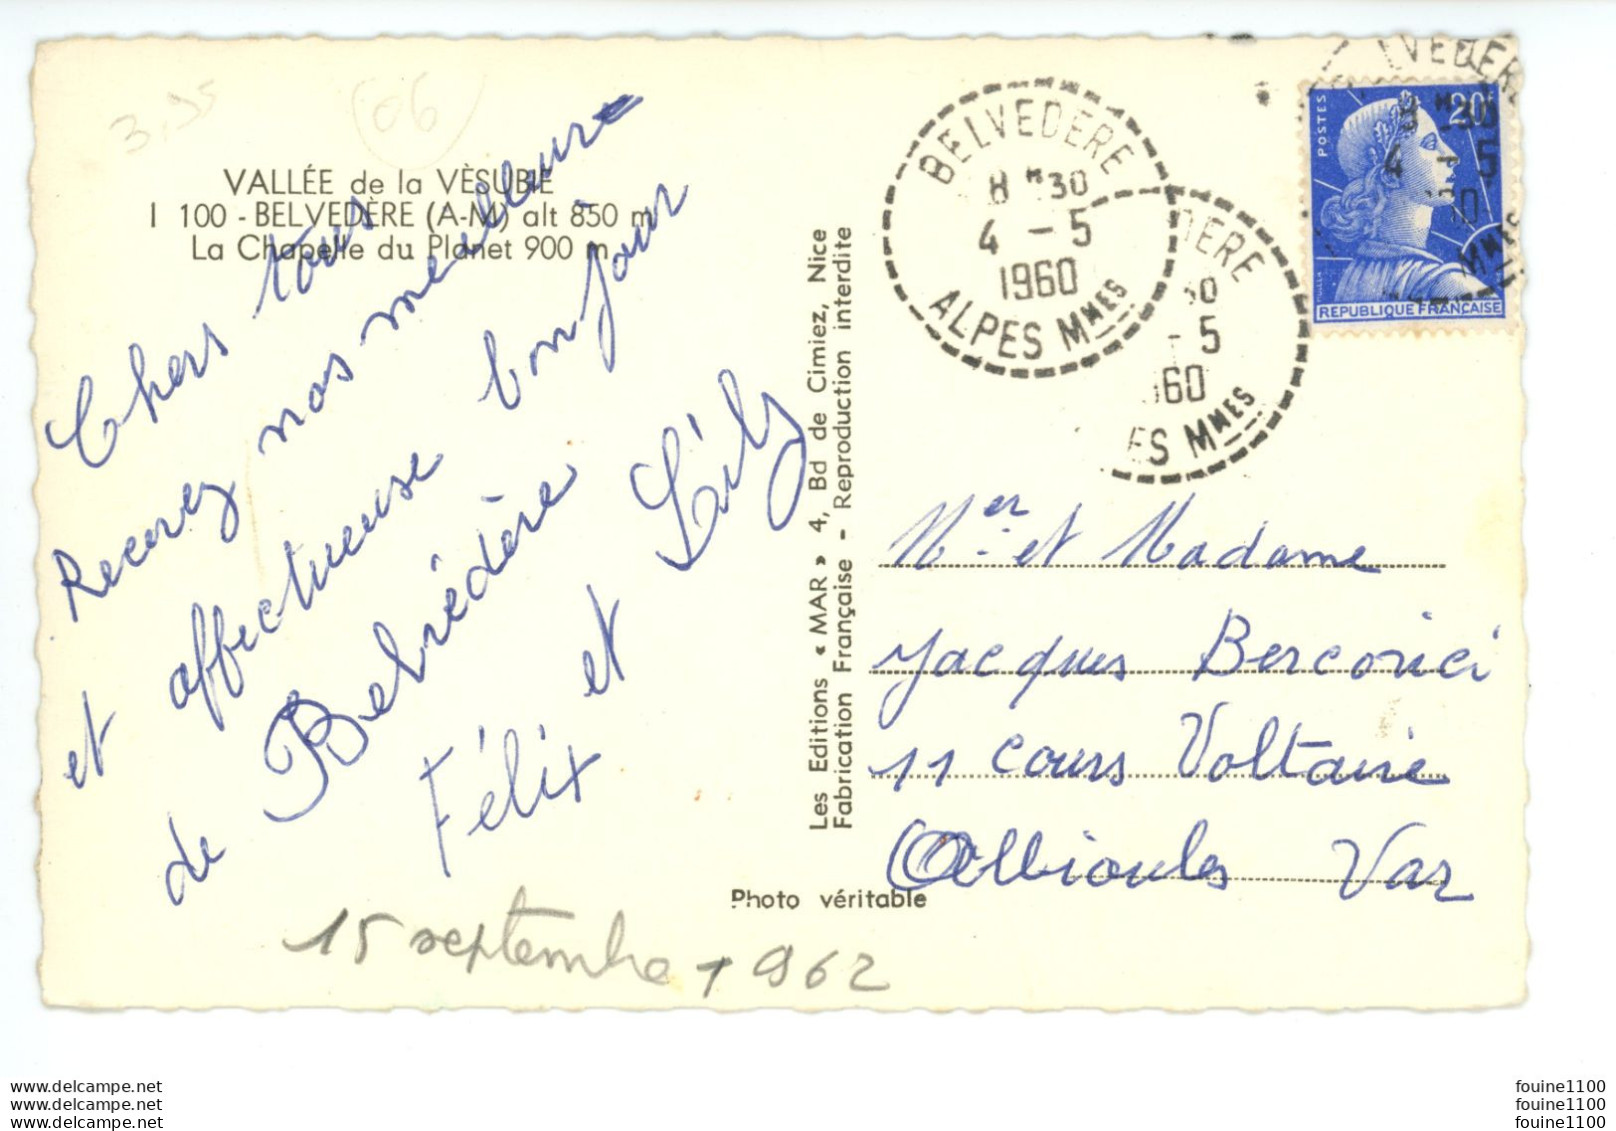 3,95
06
VALLÉE de la VÈSUBIE
I 100 - BELVEDÈRE (A-M) alt 850 m
La Chapelle du Planet 900 m.
Chers tous
Recevez nos meilleurs
et affectueuse bonjour
de Belvédère
Félix et Lily
15 septembre 1962
Les Editions « MAR » 4, Bd de Cimiez, Nice
Fabrication Française - Reproduction interdite
Photo véritable
BELVEDERE
8 H 30
4 - 5
1960
ALPES MMES
DERE
30
- 5
960
ES MMES
VEDERE
8 H 30
4 - 5
MMES
POSTES
20F
REPUBLIQUE FRANÇAISE
Mer et Madame
Jacques Bercovici
11 cours Voltaire
Ollioules Var
www.delcampe.net
www.delcampe.net
www.delcampe.net
fouine1100
fouine1100
fouine1100